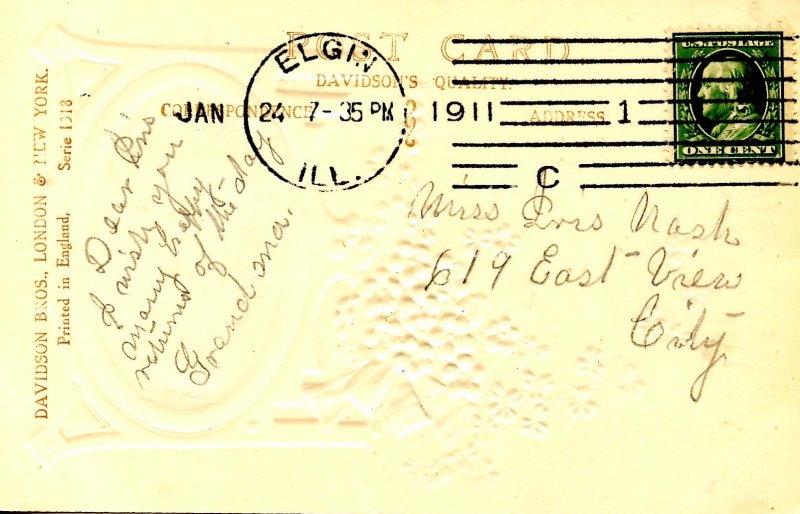 POST CARD
DAVIDSON'S QUALITY.
CORRESPONDENCE
ADDRESS
ELGIN
JAN 24 7-35 PM 1911
ILL.
1
C
U.S. POSTAGE
ONE CENT
DAVIDSON BROS., LONDON & NEW YORK.
Printed in England, Serie 1318
Dear
I wish you
many happy
returns of the day
Grandma.
Miss Nash
619 East View
City